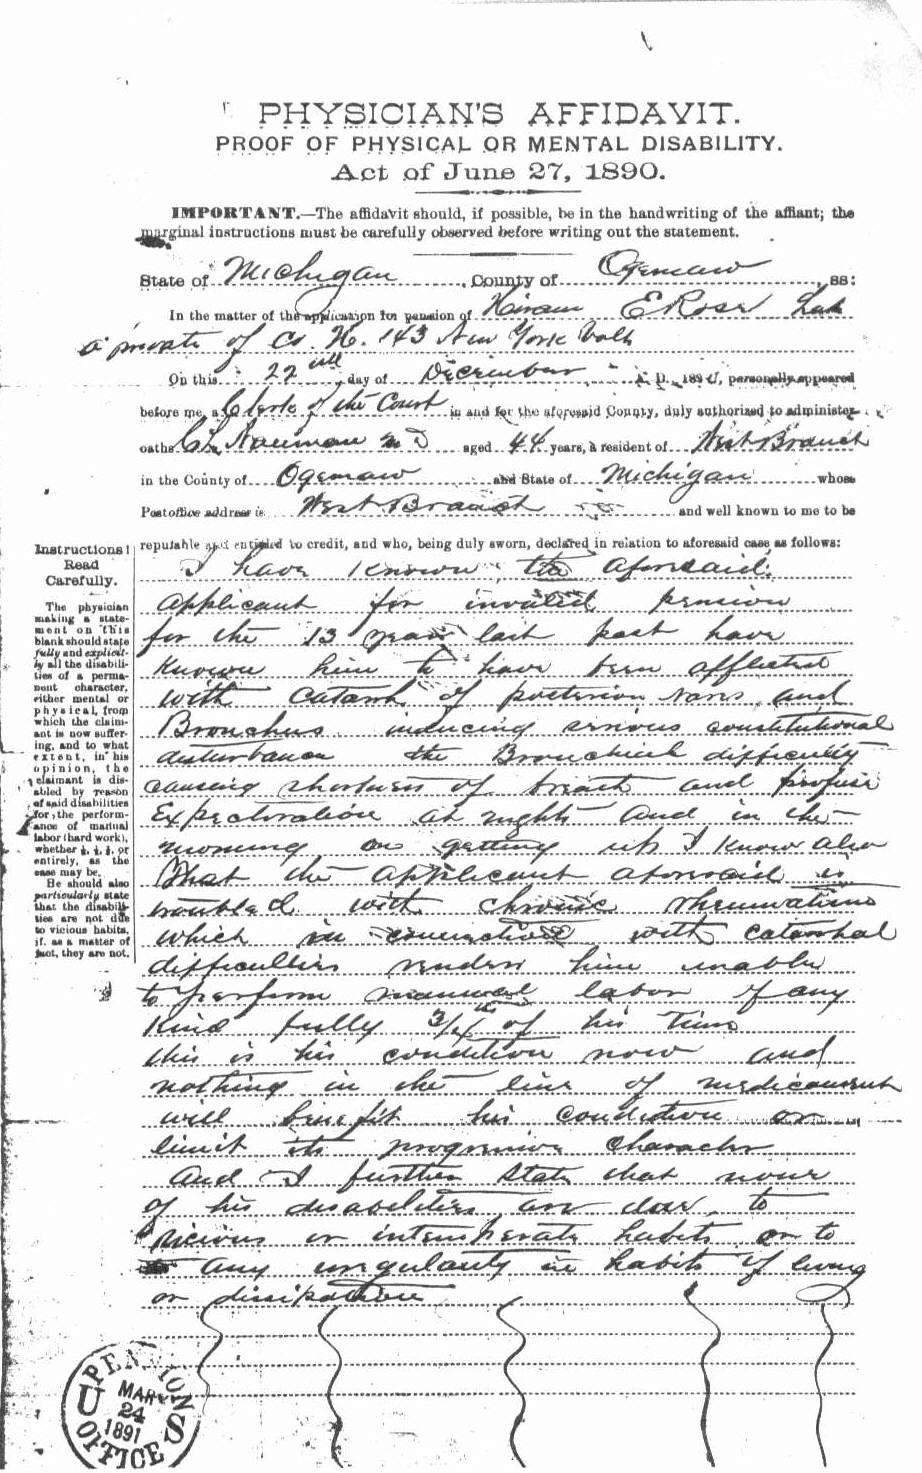 PHYSICIAN'S AFFIDAVIT.
PROOF OF PHYSICAL OR MENTAL DISABILITY.
Act of June 27, 1890.
IMPORTANT.—The affidavit should, if possible, be in the handwriting of the affiant; the
marginal instructions must be carefully observed before writing out the statement.
State of Michigan, County of Ogemaw, ss:
In the matter of the application for pension of Hiram E Rose Late
a private of Co. H. 143 New York Volls
On this 22 day of December A. D. 189, personally appeared
before me, a Clerk of the Court in and for the aforesaid County, duly authorized to administer
oaths C L Nauman M D aged 44 years, a resident of West Branch
in the County of Ogemaw and State of Michigan whose
Postoffice address is West Branch and well known to me to be
reputable and entitled to credit, and who, being duly sworn, declared in relation to aforesaid case, as follows:
Instructions!
Read
Carefully.
The physician
making a state-
ment on this
blank should state
fully and explicit-
ly all the disabili-
ties of a perma-
nent character,
either mental or
physical, from
which the claim-
ant is now suffer-
ing, and to what
extent, in his
opinion, the
claimant is dis-
abled by reason
of said disabilities
for the perform-
ance of manual
labor (hard work),
whether ¼, ½, ¾, or
entirely, as the
case may be.
He should also
particularly state
that the disabili-
ties are not due
to vicious habits,
if, as a matter of
fact, they are not.
I have known the aforesaid
applicant for invalid pension
for the 13 years last past have
known him to have been afflicted
with catarrh of posterior nares and
Bronchus inducing serious constitutional
disturbance the Bronchial difficulty
causing shortness of breath and profuse
Expectoration at nights and in the
morning on getting up I know also
That the applicant aforesaid is
troubled with chronic rheumatism
which in connection with catarrhal
difficulties renders him unable
to perform manual labor of any
kind fully 3/4 of his time
this is his condition now and
nothing in the line of medicament
will benefit his condition or
limit its progressive character
And I further state that none
of his disabilities are due to
vicious or intemperate habits or to
any irregularity in habits of living
or dissipation
U S PENSION OFFICE
MAR
24
1891